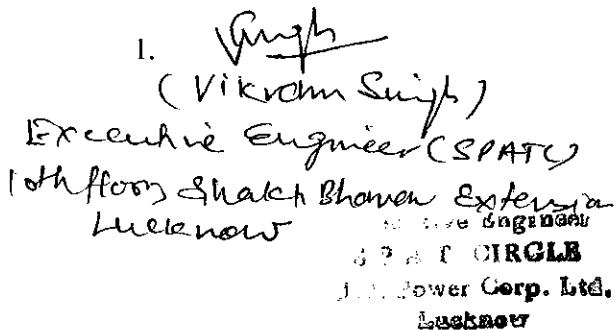 1. VSingh
(Vikram Singh)
Executive Engineer (SPATC)
10th floor, Shakti Bhawan Extension
Lucknow
Engineer
CIRCLE
Power Corp. Ltd.
Lucknow